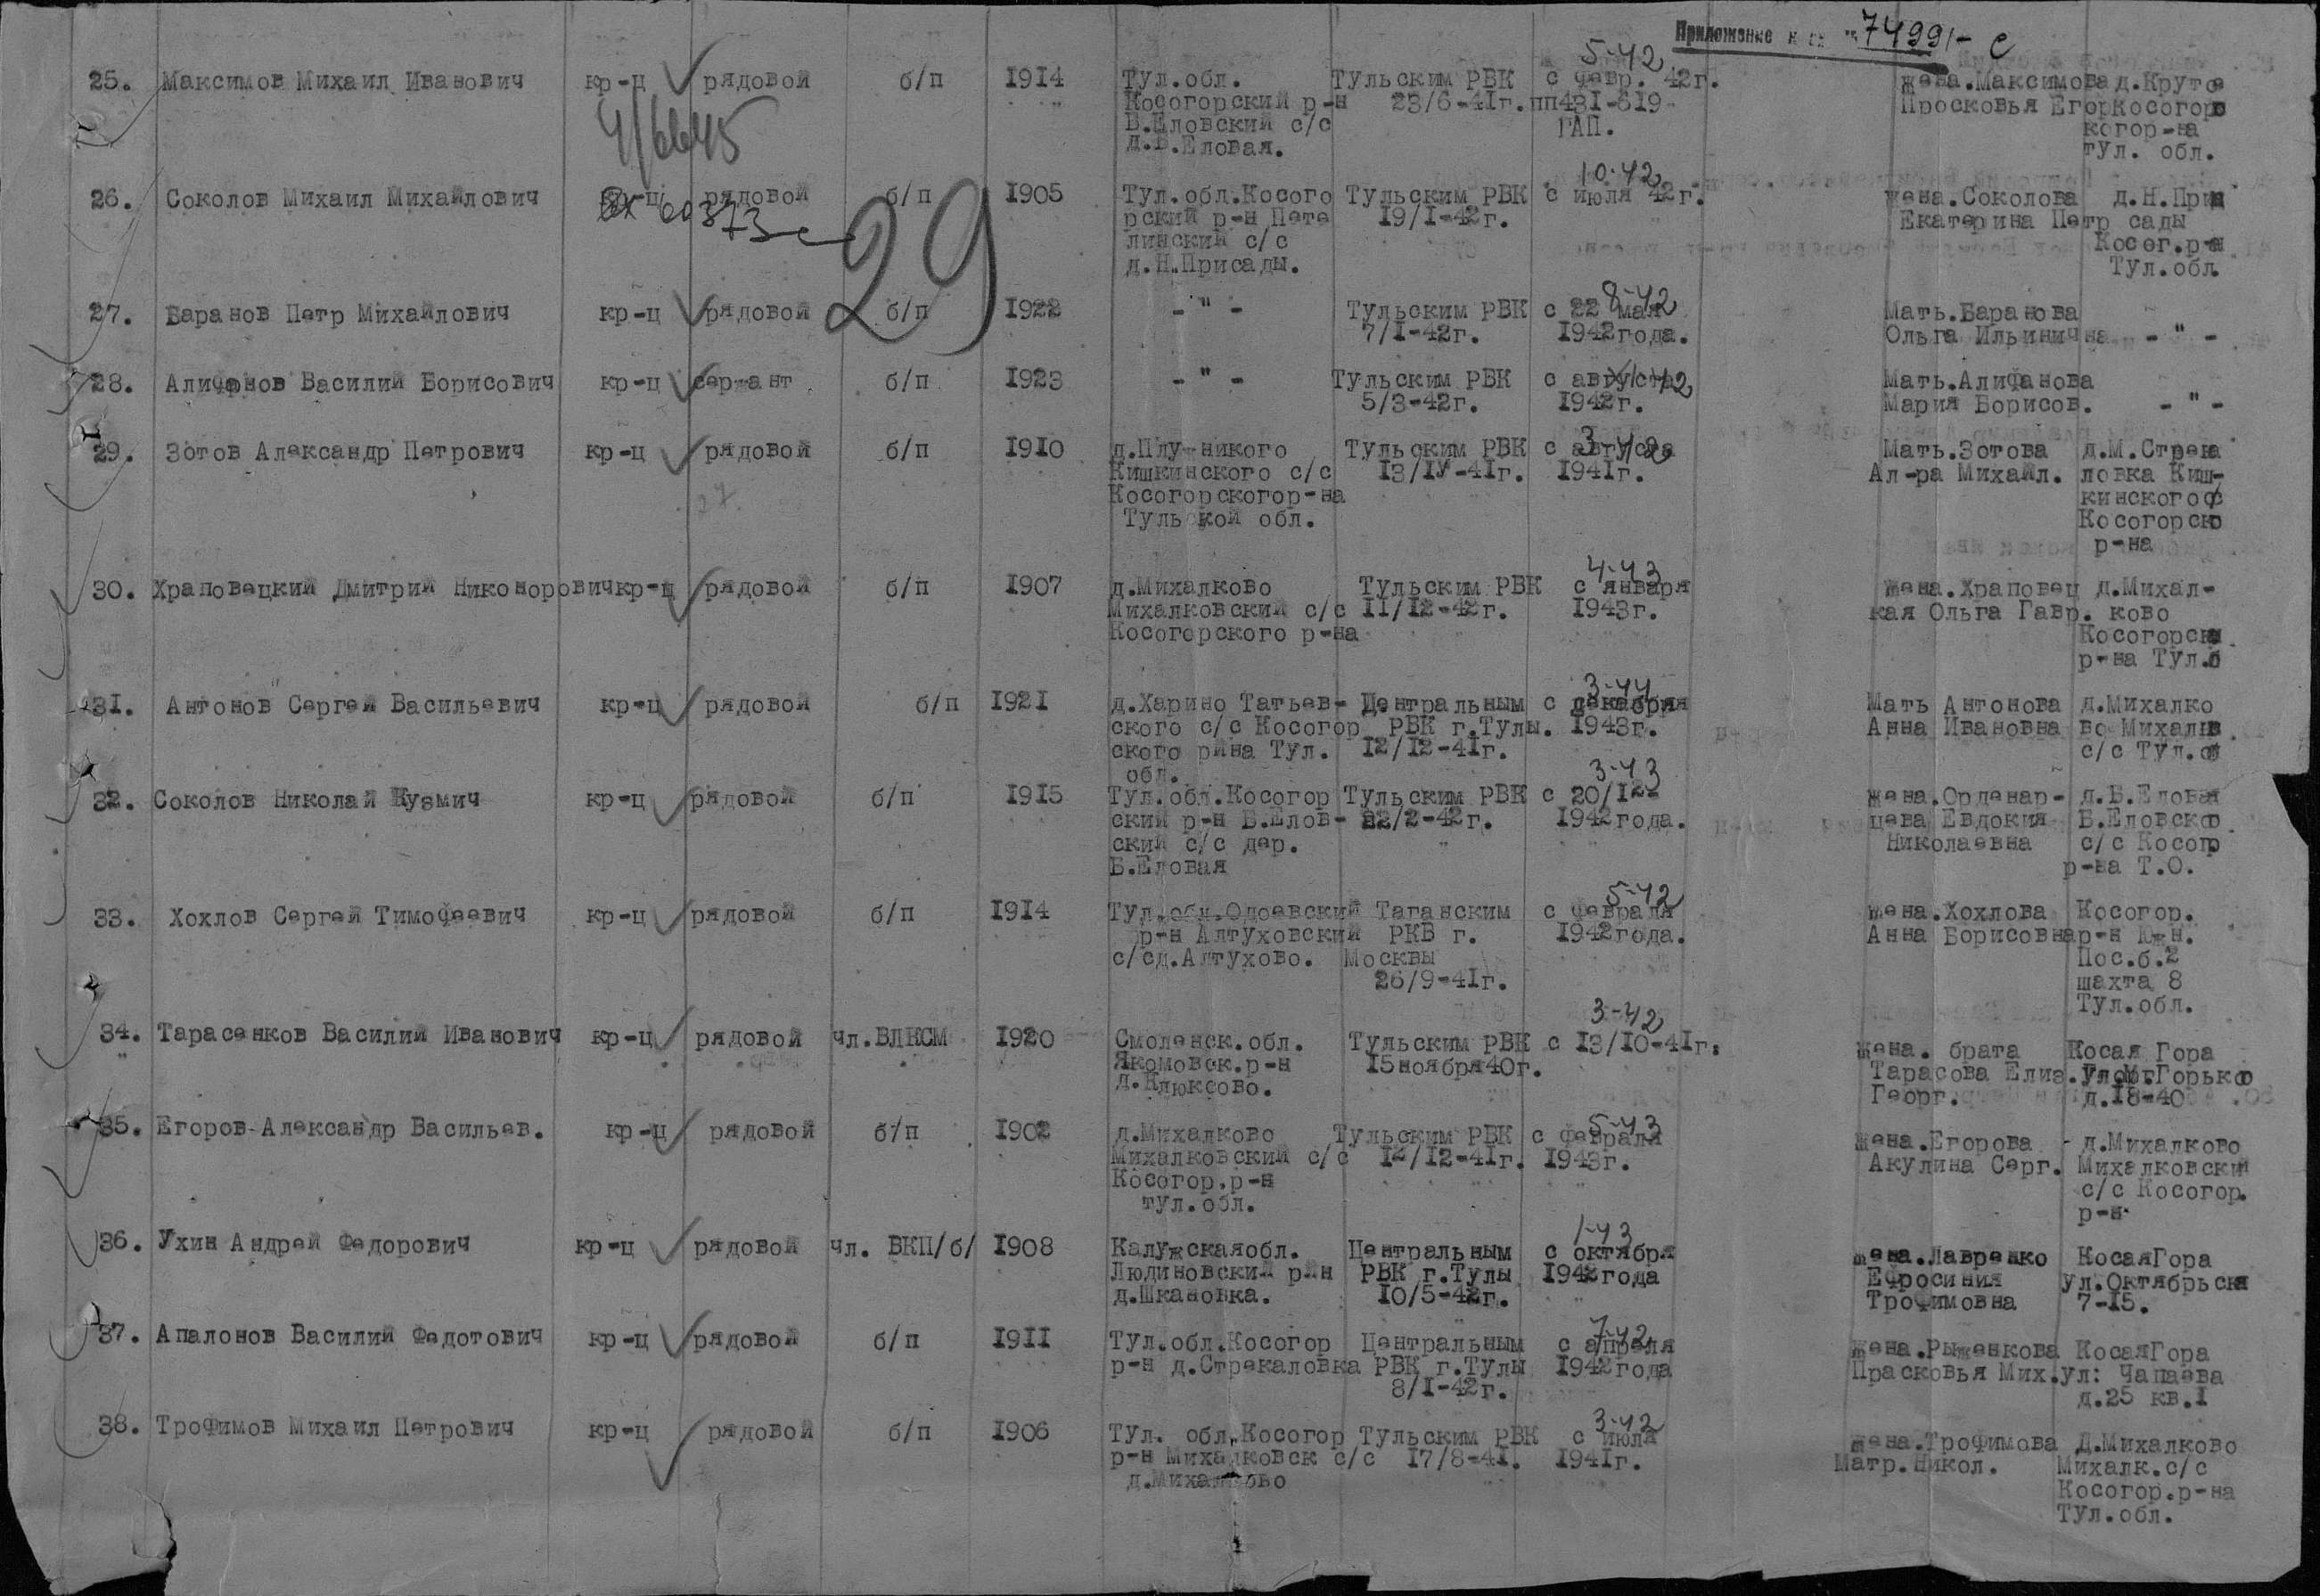 Приложение к вх № 74991-с
5-42
25. Максимов Михаил Иванович кр-ц рядовой б/п 1914 Тул.обл. Тульским РВК с февр. 42г. жена.Максимова д.Круто
Косогорский р-н 23/6-41г. пп431-619 Просковья Егор Косогорс
4/6645 Б.Еловский с/с ГАП. когор-на
д.Б.Еловая. тул. обл.
10-42
26. Соколов Михаил Михайлович кр-ц рядовой б/п 1905 Тул.обл.Косого Тульским РВК с июля 42г. жена.Соколова д.Н.При
вх 60373с 29 рский р-н Пете 19/I-42г. Екатерина Петр сады
линский с/с Косог.р-н
д.Н.Присады. Тул.обл.
8-42
27. Баранов Петр Михайлович кр-ц рядовой б/п 1922 -"- Тульским РВК с 22 мая Мать.Баранова
7/I-42г. 1942года. Ольга Ильинична -"-
28. Алифонов Василий Борисович кр-ц сержант б/п 1923 -"- Тульским РВК с августа Мать.Алифанова
5/3-42г. 1942г. Мария Борисов. -"-
29. Зотов Александр Петрович кр-ц рядовой б/п 1910 д.Плутникого Тульским РВК с августа Мать.Зотова д.М.Стрека
Кишкинского с/с 13/IУ-41г. 1941г. Ал-ра Михайл. ловка Киш-
Косогорскогор-на кинского с
Тульской обл. Косогорско
р-на
4-43
30. Храповецкий Дмитрий Никоноровичкр-ц рядовой б/п 1907 д.Михалково Тульским РВК с января жена.Храповец д.Михал-
Михалковский с/с 11/12-42г. 1943г. кая Ольга Гавр. ково
Косогорского р-на Косогорск
р-на Тул.
3-44
31. Антонов Сергей Васильевич кр-ц рядовой б/п 1921 д.Харино Татьев- Центральным с декабря Мать Антонова д.Михалко
ского с/с Косогор РВК г.Тулы. 1943г. Анна Ивановна во Михалк
ского рйна Тул. 12/12-41г. с/с Тул.о
обл.
3-43
32. Соколов Николай Кузмич кр-ц рядовой б/п 1915 Тул.обл.Косогор Тульским РВК с 20/12- жена.Орденар- д.Б.Еловая
ский р-н Б.Елов- 22/2-42г. 1942года. цева Евдокия Б.Еловско
ский с/с дер. Николаевна с/с Косог
Б.Еловая р-на Т.О.
5-42
33. Хохлов Сергей Тимофеевич кр-ц рядовой б/п 1914 Тул.обл.Одоевский Таганским с февраля жена.Хохлова Косогор.
р-н Алтуховский РКВ г. 1942года. Анна Борисовна р-н Южн.
с/сд.Алтухово. Москвы Пос.б.2
26/9-41г. шахта 8
Тул.обл.
3-42
34. Тарасенков Василий Иванович кр-ц рядовой чл.ВЛКСМ 1920 Смоленск.обл. Тульским РВК с 13/10-41г. жена. брата Косая Гора
Якомовск.р-н 15ноября40г. Тарасова Елиз. Горько
д.Клюксово. Георг. д.18-40
5-43
35. Егоров-Александр Васильев. кр-ц рядовой б/п 1902 д.Михалково Тульским РВК с февраля жена.Егорова д.Михалково
Михалковский с/с 12/12-41г. 1943г. Акулина Серг. Михалковски
Косогор.р-н с/с Косогор.
тул.обл. р-н
1-43
36. Ухин Андрей Федорович кр-ц рядовой чл. ВКП/б/ 1908 Калужскаяобл. Центральным с октября жена.Лавренко КосаяГора
Людиновский рйн РВК г.Тулы 1942года Ефросиния ул.Октябрьск
д.Шкановка. 10/5-42г. Трофимовна 7-15.
7-42
37. Апалонов Василий Федотович кр-ц рядовой б/п 1911 Тул.обл.Косогор Центральным с апреля жена.Рыженкова КосаяГора
р-н д.Стрекаловка РВК г.Тулы 1942года Прасковья Мих. ул: Чапаева
8/I-42г. д.25 кв.1
3-42
38. Трофимов Михаил Петрович кр-ц рядовой б/п 1906 Тул. обл,Косогор Тульским РВК с июля жена.Трофимова Д.Михалково
р-н Михалковск с/с 17/8-41. 1941г. Матр.Никол. Михалк.с/с
д.Михалково Косогор.р-на
Тул.обл.